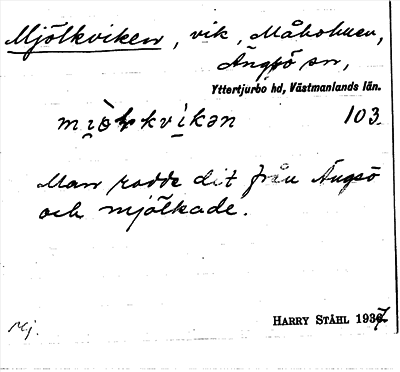 Mjölkviken, vik, Måholmen,
Ängsö sn,
Yttertjurbo hd, Västmanlands län.
103.
Man rodde dit från Ängsö
och mjölkade.
HARRY STÅHL 1937
Mj.